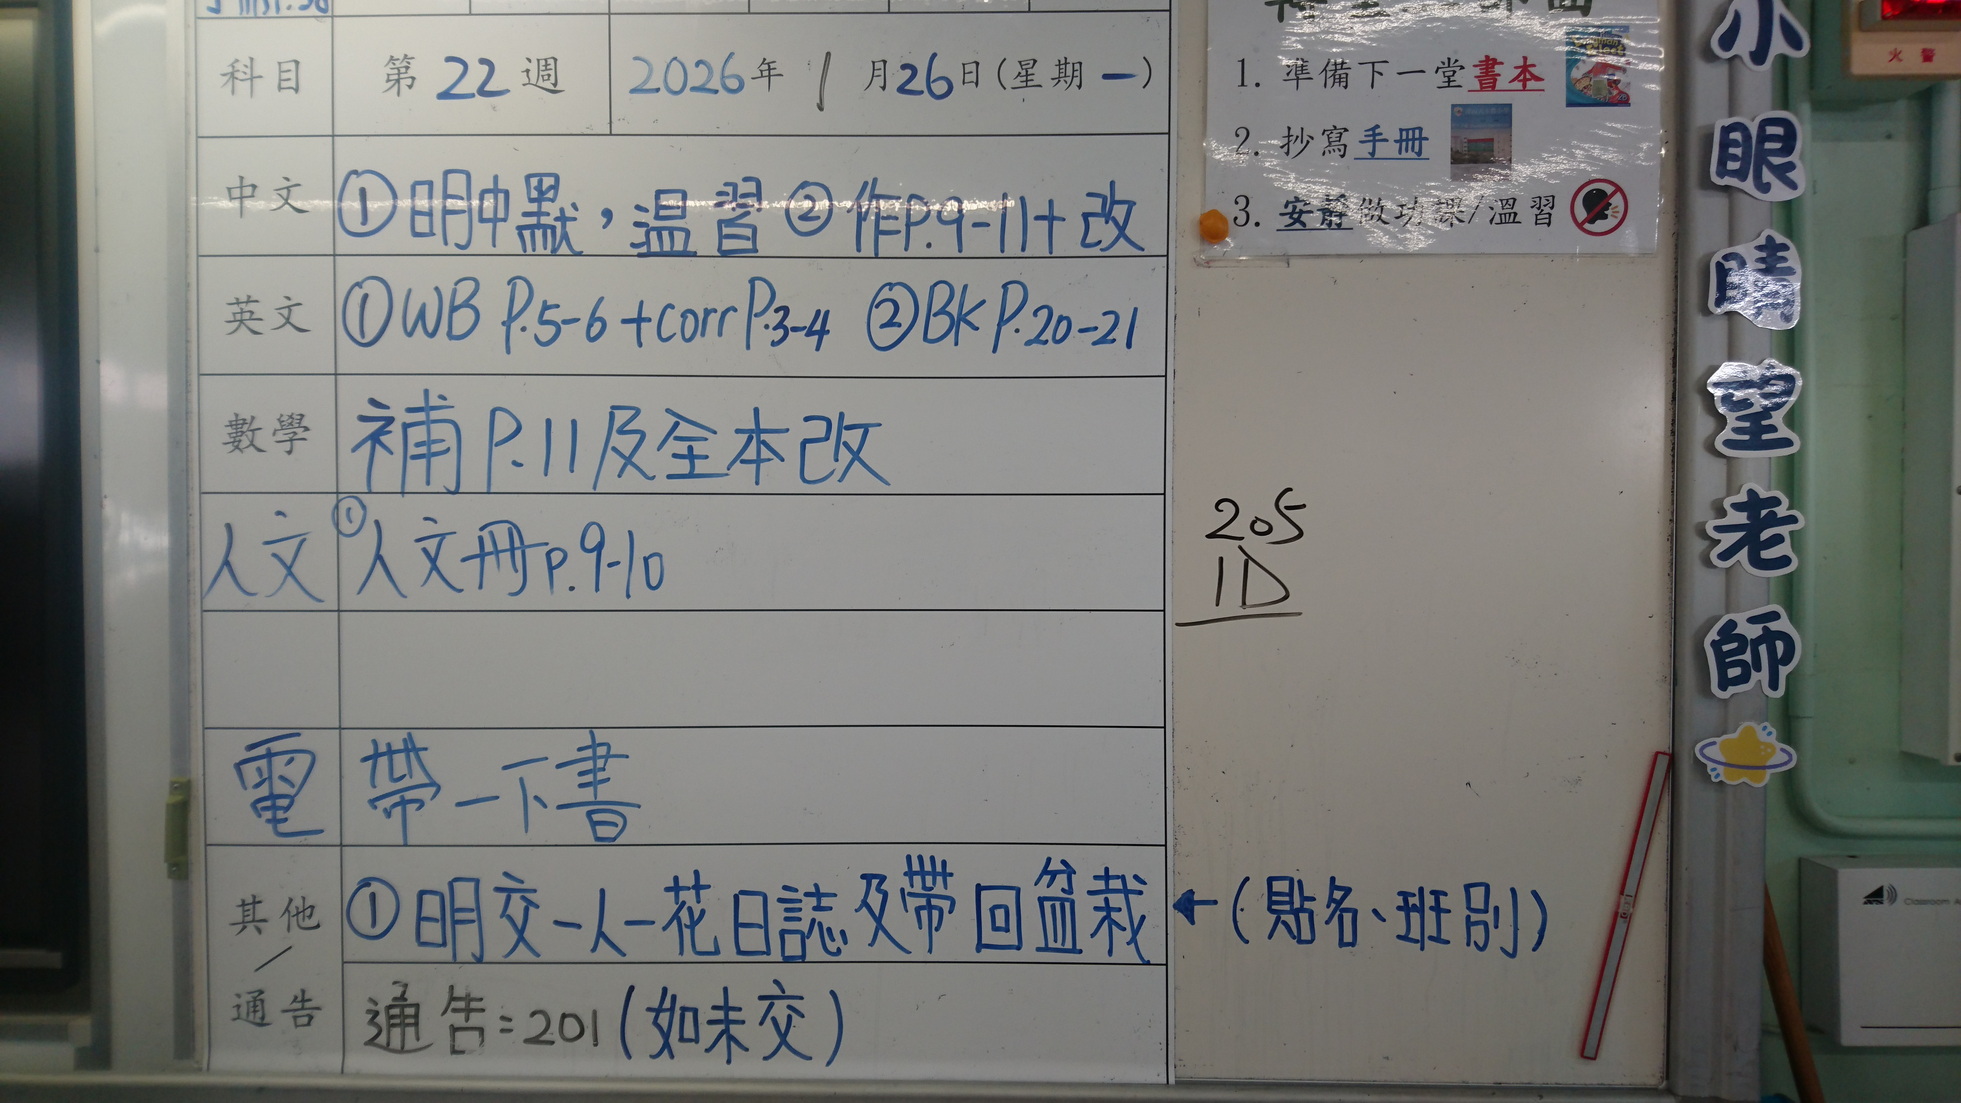 科目 第22週 2026年1月26日(星期一)
中文 ①明中默，温習 ②作P.9-11+改
英文 ①WB P.5-6+corr P.3-4 ②BK P.20-21
數學 補P.11及全本改
人文 ①人文冊p.9-10
電 帶一下書
其他/通告 ①明交一人一花日誌及帶回盆栽 ←(貼名、班別)
通告:201(如未交)
1. 準備下一堂書本
2. 抄寫手冊
3. 安靜做功課/溫習
205
1D
小眼睛望老師
火警